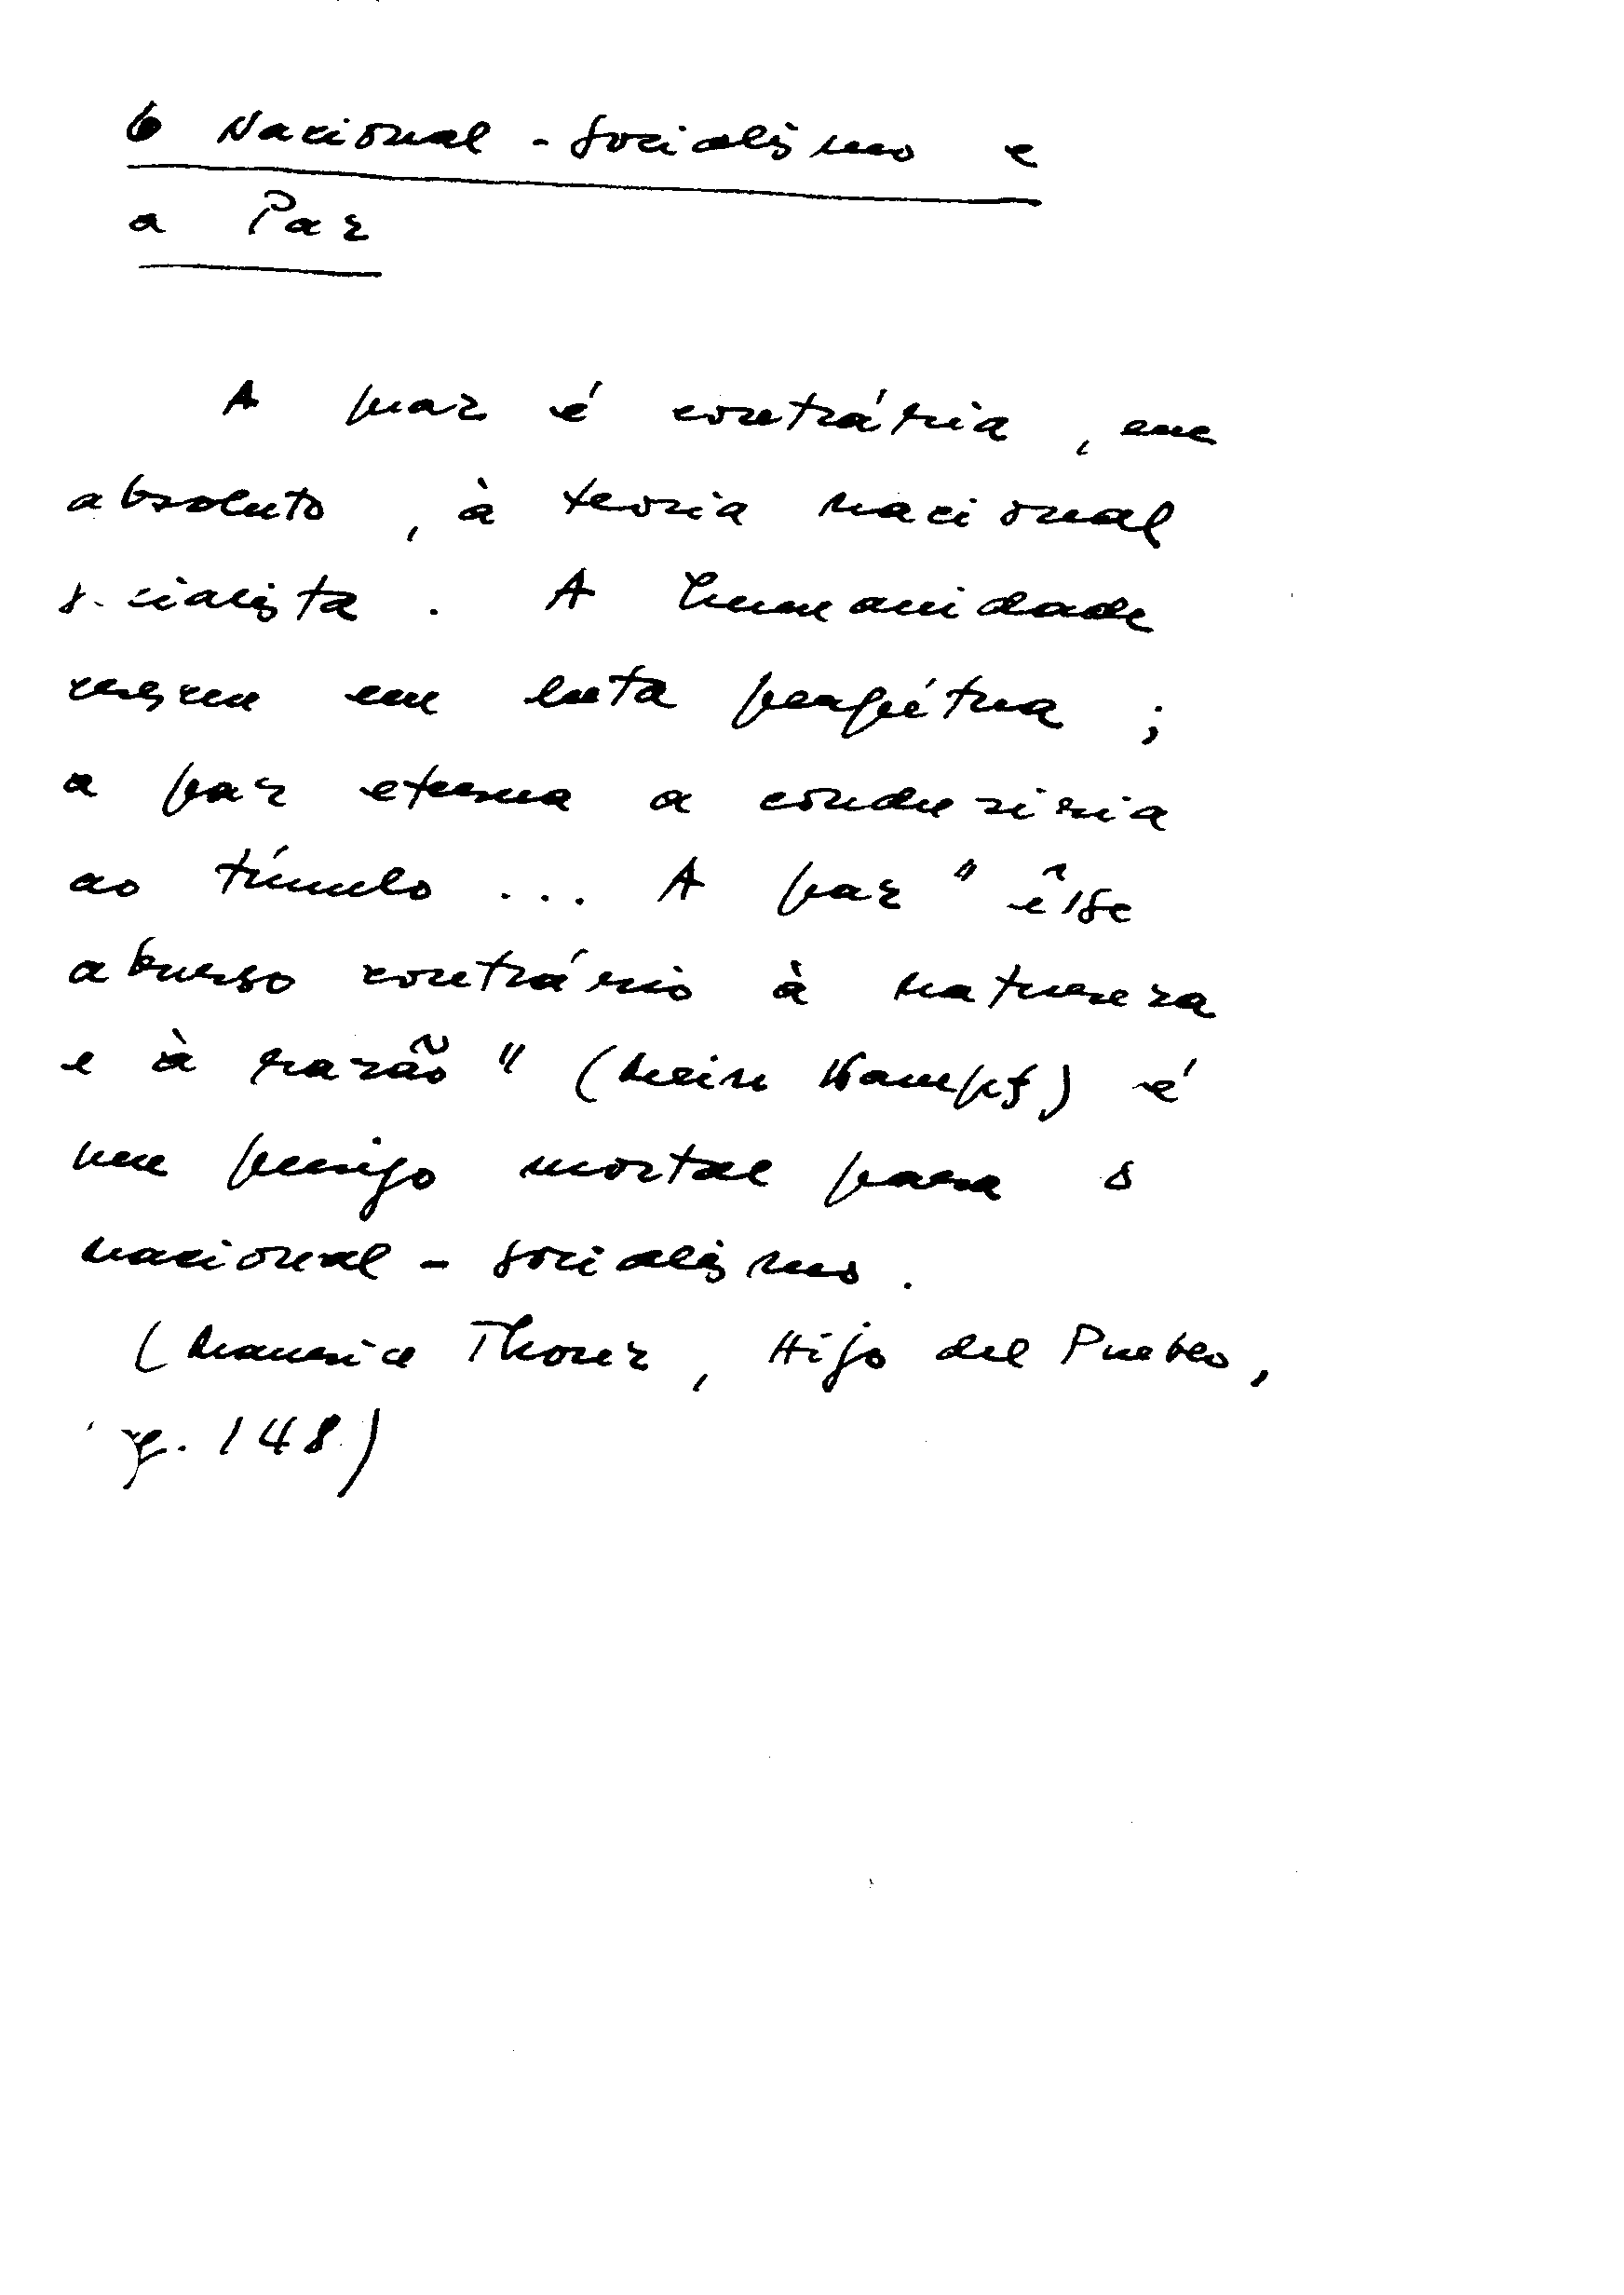 O Nacional-Socialismo e
a Paz
A paz é contrária, em
absoluto, à teoria nacional
socialista. A humanidade
cresceu em luta perpétua;
a paz eterna a conduziria
ao túmulo... A paz "êsse
abuso contrário à natureza
e à razão" (Mein Kampf) é
um perigo mortal para o
nacional-socialismo.
(Maurice Thorez, Hijo del Pueblo,
p. 148)